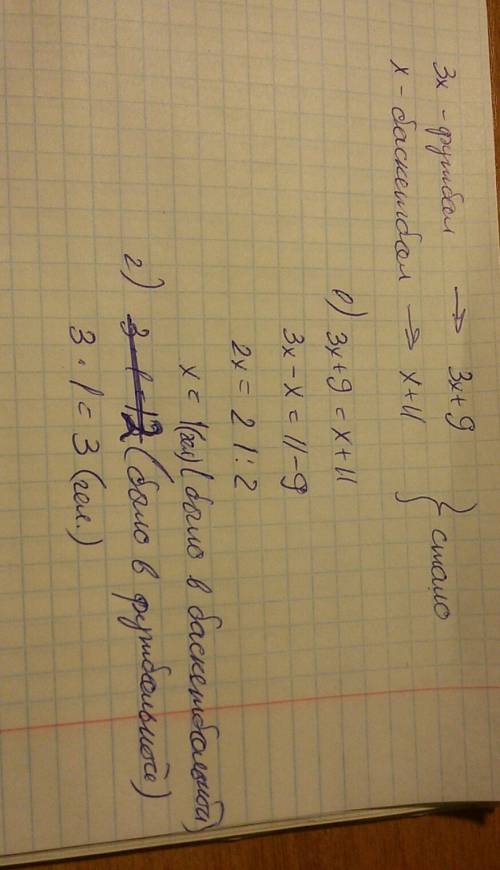 3x - футбол → 3x+9
x - баскетбол → x+11 } стало
1) 3x+9 = x+11
3x-x = 11-9
2x = 2 | : 2
x = 1(чел) (было в баскетбольной)
2) 3·1=12 (было в футбольной)
3 · 1 = 3 (чел.)